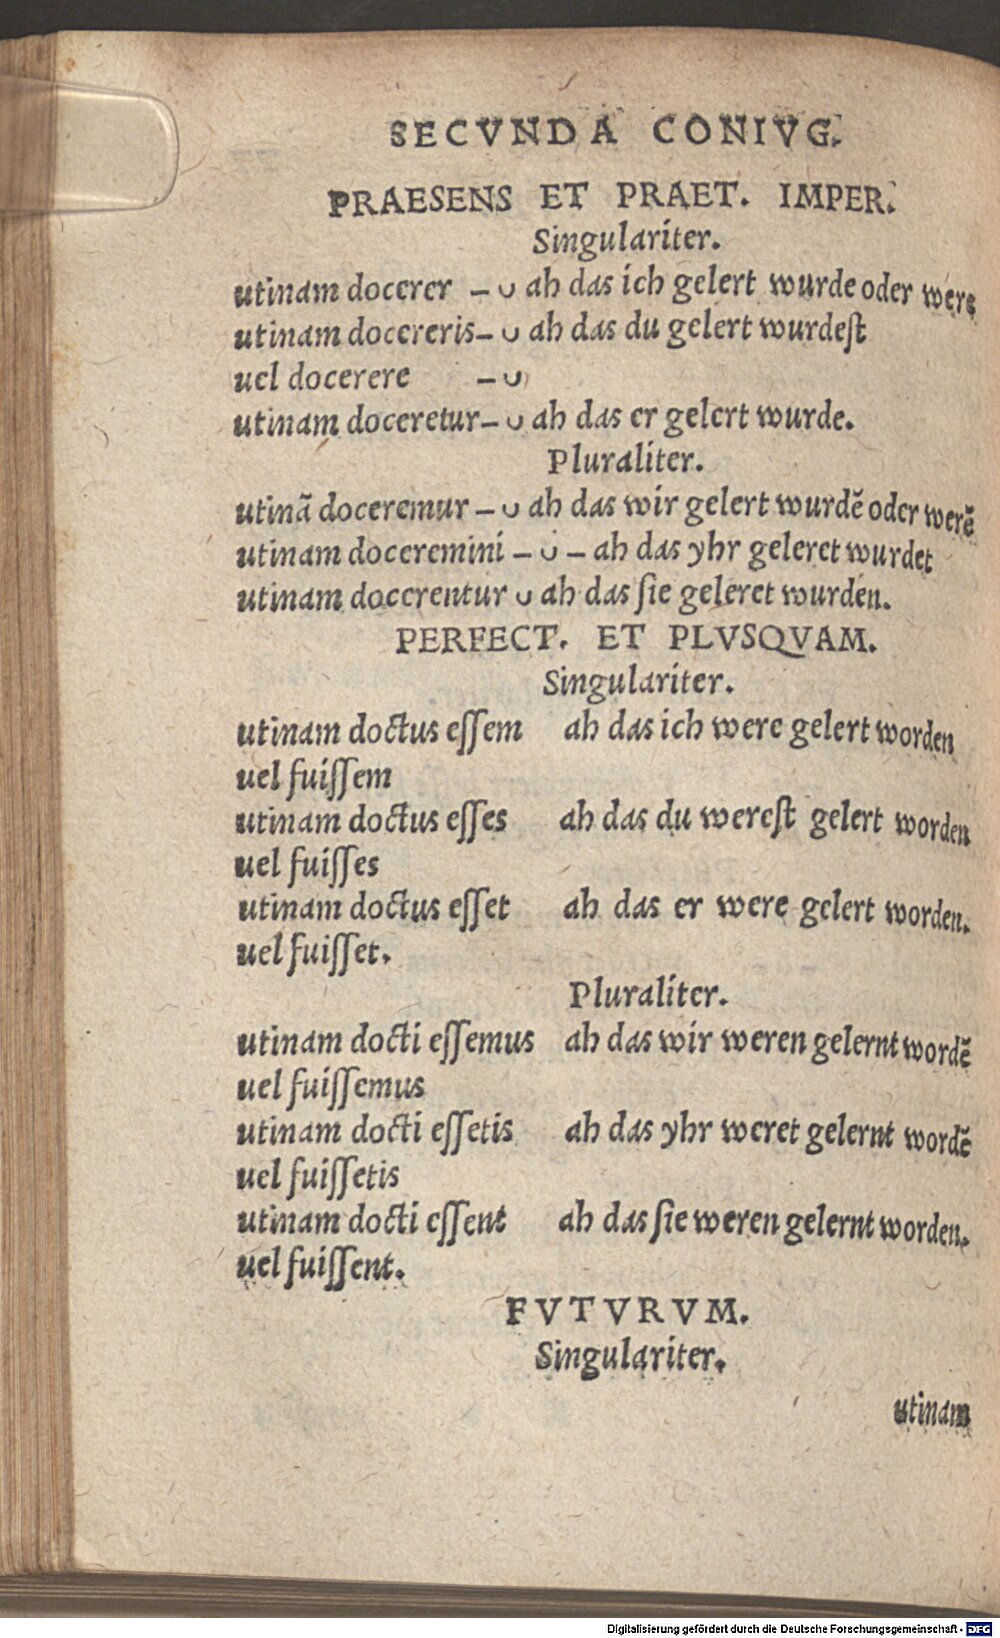 SECVNDA CONIVG.
PRAESENS ET PRAET. IMPER.
Singulariter.
utinam docerer – ∪ ah das ich gelert wurde oder were
utinam docereris – ∪ ah das du gelert wurdeſt
uel docerere – ∪
utinam doceretur – ∪ ah das er gelert wurde.
Pluraliter.
utinã doceremur – ∪ ah das wir gelert wurdẽ oder werẽ
utinam doceremini – ∪ – ah das yhr geleret wurdet
utinam docerentur ∪ ah das ſie geleret wurden.
PERFECT. ET PLVSQVAM.
Singulariter.
utinam doctus eſſem ah das ich were gelert worden
uel fuiſſem
utinam doctus eſſes ah das du wereſt gelert worden
uel fuiſſes
utinam doctus eſſet ah das er were gelert worden.
uel fuiſſet.
Pluraliter.
utinam docti eſſemus ah das wir weren gelernt wordẽ
uel fuiſſemus
utinam docti eſſetis ah das yhr weret gelernt wordẽ
uel fuiſſetis
utinam docti eſſent ah das ſie weren gelernt worden.
uel fuiſſent.
FVTVRVM.
Singulariter.
utinam
Digitalisierung gefördert durch die Deutsche Forschungsgemeinschaft - DFG